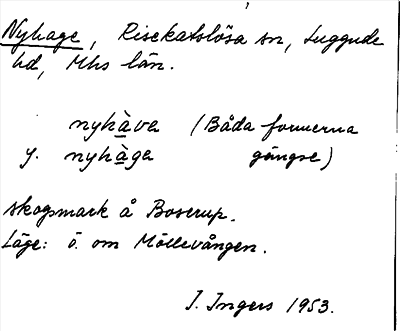 Nyhage, Risekatslösa sn, Luggude
hd, Mhs län.
nyhàva (Båda formerna
y. nyhàga gängse)
skogsmark å Boserup.
Läge: ö. om Möllevången.
I. Ingers 1953.